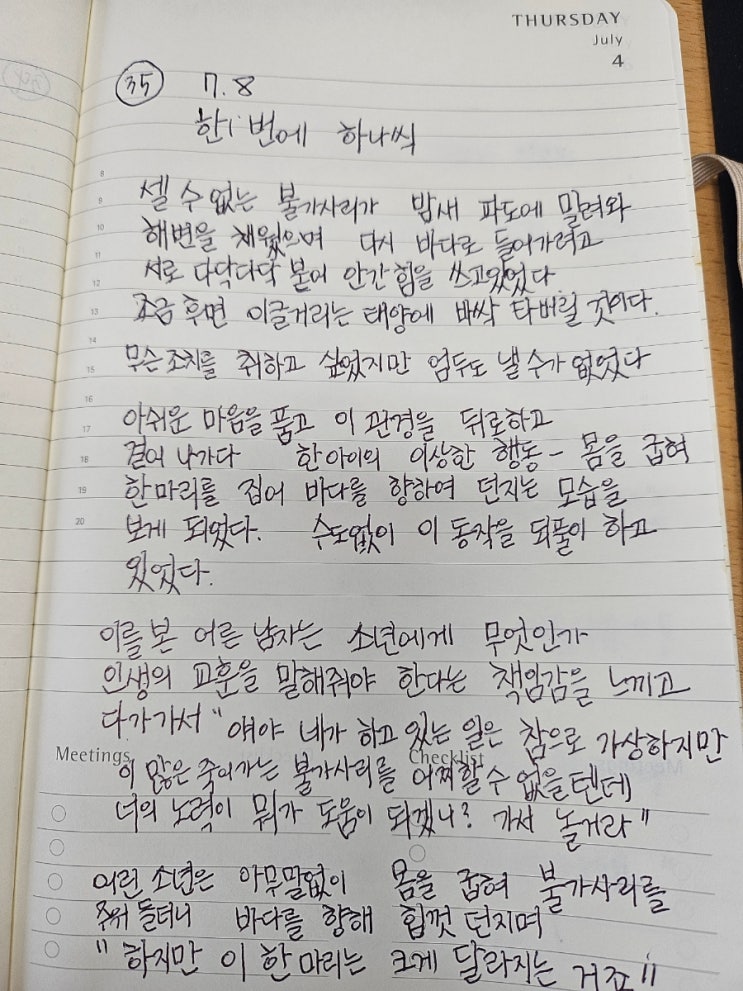 THURSDAY
July
4
35 7. 8
한 번에 하나씩
8
9 셀 수 없는 불가사리가 밤새 파도에 밀려와
10 해변을 채웠으며 다시 바다로 들어가려고
11 서로 다닥다닥 붙어 안간힘을 쓰고있었다
12
13 조금 후면 이글거리는 태양에 바싹 타버릴 것이다.
14
15 무슨 조치를 취하고 싶었지만 엄두도 낼 수가 없었다
16
17 아쉬운 마음을 품고 이 관경을 뒤로하고
18 걸어 나가다 한 아이의 이상한 행동 - 몸을 굽혀
19 한마리를 집어 바다를 향하여 던지는 모습을
20 보게 되었다. 수도없이 이 동작을 되풀이 하고
있었다.
이를 본 어른 남자는 소년에게 무엇인가
인생의 교훈을 말해줘야 한다는 책임감을 느끼고
다가가서 " 얘야 네가 하고 있는 일은 참으로 가상하지만
Meetings Checklist
이 많은 죽어가는 불가사리를 어찌할 수 없을텐데
너의 노력이 뭐가 도움이 되겠니? 가서 놀거라 "
어린 소년은 아무말없이 몸을 굽혀 불가사리를
주워 들더니 바다를 향해 힘껏 던지며
" 하지만 이 한 마리는 크게 달라지는 거죠 !!